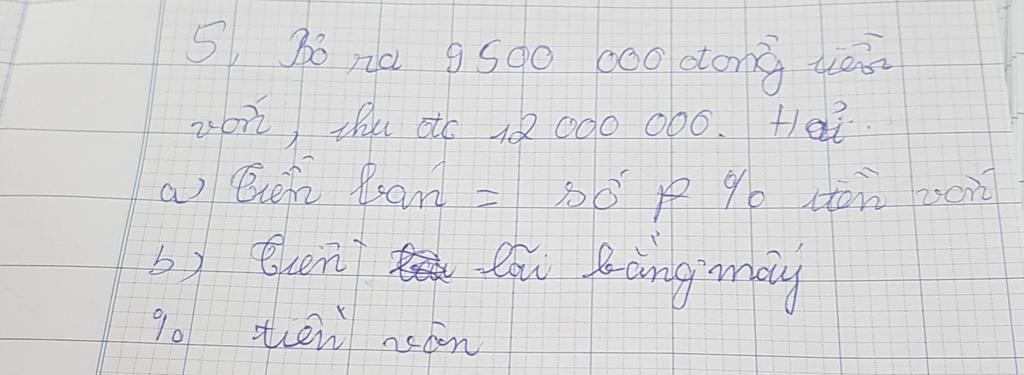 5, Bỏ ra 9500 000 đồng tiền
vốn, thu đc 12 000 000. Hỏi:
a) tiền bán = số p % tiền vốn
b) tiền lãi bằng mấy
% tiền vốn